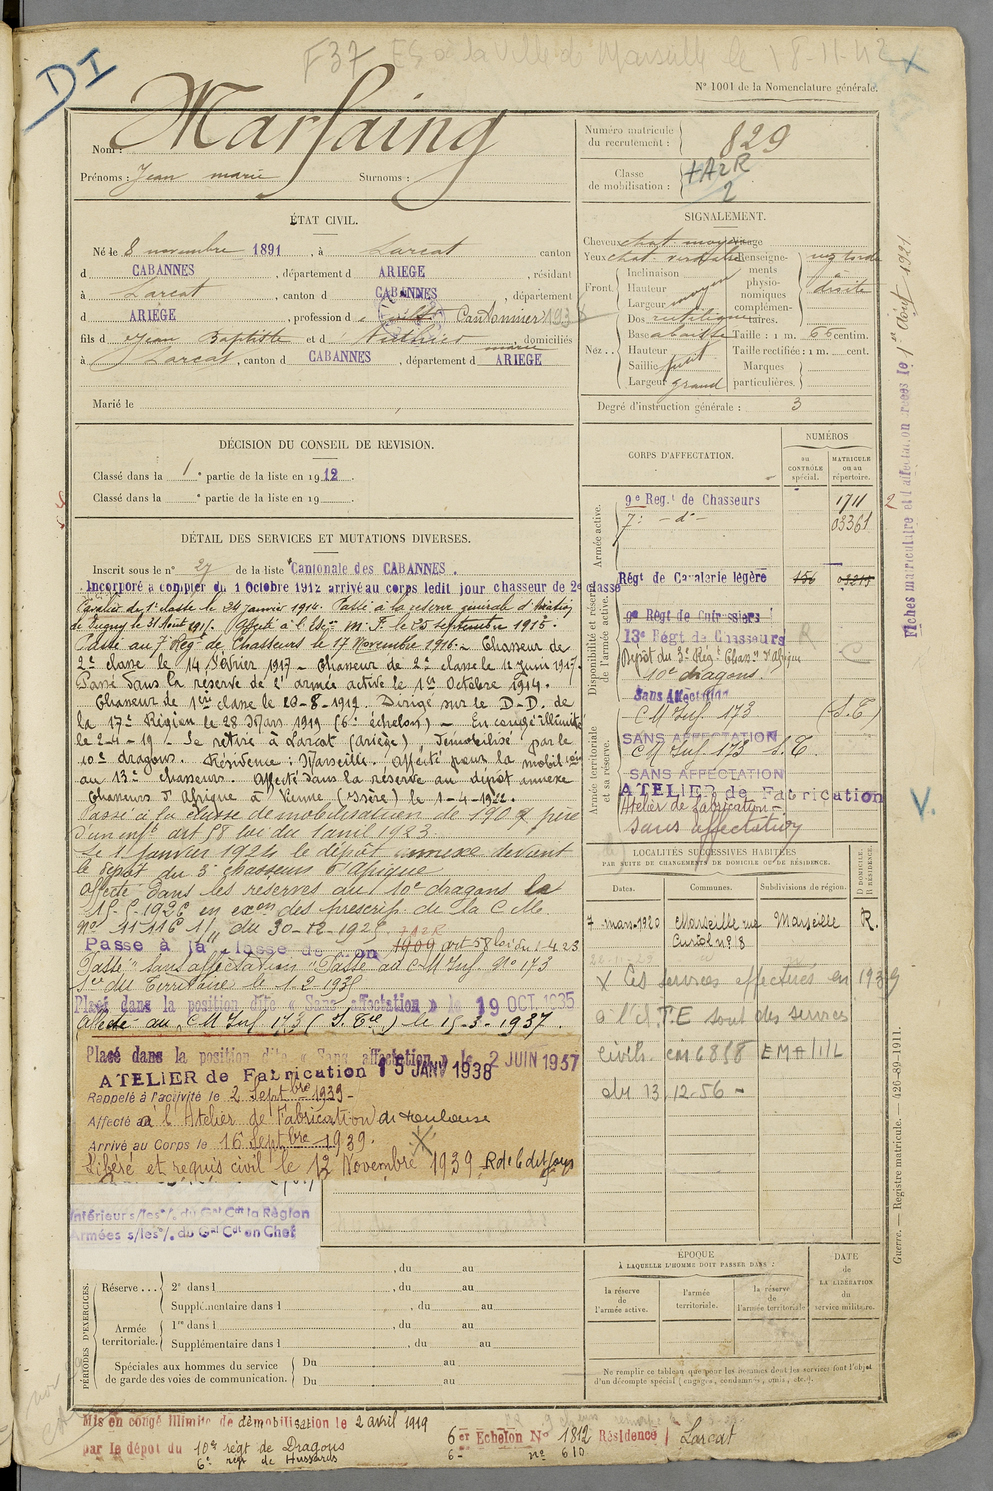 DI
F37 ES à la Ville de Marseille le 18-11-42 X
N° 1001 de la Nomenclature générale.
Nom : Marfaing
Prénoms : Jean marie Surnoms :
Numéro matricule du recrutement : 829
Classe de mobilisation : + A2R 2
ÉTAT CIVIL.
Né le 8 novembre 1891, à Larcat canton
d CABANNES, département d ARIEGE, résidant
à Larcat, canton d CABANNES, département
d ARIEGE, profession de Cantonnier 1936
fils de Jean Baptiste et d marie, domiciliés
à Larcat, canton d CABANNES, département d ARIEGE
Marié le
SIGNALEMENT.
Cheveux chat. moyen Visage
Yeux chat. verdatre Renseignements physionomiques complémentaires.
nez tordu à droite
Front. Inclinaison
Hauteur moyen
Largeur
Nez.. Dos rectiligne
Base abaissée Taille : 1 m. 65 centim.
Hauteur Taille rectifiée : 1 m. cent.
Saillie petit Marques particulières.
Largeur grand
Degré d'instruction générale : 3
DÉCISION DU CONSEIL DE REVISION.
Classé dans la 1e partie de la liste en 1912.
Classé dans la e partie de la liste en 19 .
DÉTAIL DES SERVICES ET MUTATIONS DIVERSES.
Inscrit sous le n° 27 de la liste Cantonale des CABANNES.
Incorporé à compter du 1 Octobre 1912 arrivé au corps ledit jour chasseur de 2e classe
Cavalier de 1e classe le 24 janvier 1914. Passé à la réserve générale d'aviation
de Dugny le 31 Août 1915. Affecté à l'Esc. M. F. le 25 septembre 1915.
Passé au 7e Régt de Chasseurs le 17 Novembre 1916. – Chasseur de
2e classe le 14 février 1917 – Chasseur de 2e classe le 11 Juin 1917.
Passé dans la réserve de l'armée active le 1er Octobre 1914.
Chasseur de 1ere classe le 20-8-1912. Dirigé sur le D.D. de
la 17e Région le 28 Mars 1919 (6e échelon) – En congé illimité
le 2-4-19. Se retire à Larcat (Ariège), démobilisé par le
10e dragons. Résidence : Marseille. Affecté pour la mobilion
au 13e chasseurs. Affecté dans la réserve au dépôt annexe
Chasseurs d'Afrique à Vienne (Isère) le 1-4-1922.
Passé à la classe de mobilisation de 1909 père
d'un enft art 58 loi du 1 avril 1923
Le 1 Janvier 1924 le dépôt annexe devient
le Dépôt du 3e chasseurs d'Afrique
Affecté dans les réserves du 10e dragons le
15-5-1926 en exon des prescrip. de la C.M.
n° 11116 1/11 du 30-12-1925
Passe à la classe de mon 1909 art 58 loi du 1-4-23
Passé "sans affectation" Passé au C M Inf. n° 173
Ser du Territoire le 1-2-1935
Placé dans la position dite « Sans affectation » le 19 OCT. 1935
Affecté au C M Inf 173 (S. Ere) le 15-3-1937.
Placé dans la position dite « Sans affectation » le 2 JUIN 1937
ATELIER de Fabrication 15 JANV 1938
Rappelé à l'activité le 2 Septbre 1939 –
Affecté à l'Atelier de Fabrication de Toulouse
Arrivé au Corps le 16 Septbre 1939. X
Libéré et requis civil le 12 Novembre 1939
Intérieur s/les°/. du Gal Cdt la Région
Armées s/les°/. du Gal Cdt en Chef
CORPS D'AFFECTATION.
NUMÉROS
au CONTRÔLE spécial.
MATRICULE ou au répertoire.
Armée active.
9e Regt de Chasseurs 1711
7e – d° – 03361
Disponibilité et réserve de l'armée active.
Régt de Cavalerie légère 156 03219
9e Régt de Cuirassiers
13e Régt de Chasseurs
Dépôt du 3e Régt Chass. d'Afrique
10e dragons.
Sans Affectation
Armée territoriale et sa réserve.
C M Inf. 173 (S.T)
SANS AFFECTATION
C M Inf 173 S.T.
SANS AFFECTATION
ATELIER de Fabrication
Atelier de Fabrication –
Sans affectation
V.
LOCALITÉS SUCCESSIVES HABITÉES
PAR SUITE DE CHANGEMENTS DE DOMICILE OU DE RÉSIDENCE.
Dates. Communes. Subdivisions de région. D DOMICILE. R RÉSIDENCE.
7 mars 1920 Marseille rue Curiol n° 8 Marseille R.
X Les services effectués en 1939
à l'A.T.E sont des services
civils. cir 6858 EMA/1/L
du 13.12-56 –
Fiches matriculaire et d'affectation créées le 1er Août 1921
Guerre. — Registre matricule. — 426-89-1911.
PÉRIODES D'EXERCICES.
, du au
Réserve... 2e dans l , du au
Supplémentaire dans l , du au
Armée territoriale. 1re dans l , du au
Supplémentaire dans l , du au
Spéciales aux hommes du service de garde des voies de communication.
Du au
Du au
ÉPOQUE
À LAQUELLE L'HOMME DOIT PASSER DANS :
la réserve de l'armée active.
l'armée territoriale.
la réserve de l'armée territoriale
DATE de LA LIBÉRATION du service militaire.
Ne remplir ce tableau que pour les hommes dont les services font l'objet
d'un décompte spécial (engagés, condamnés, omis, etc.).
Mis en congé illimité de démobilisation le 2 avril 1919
par le dépôt du 10e régt de Dragons
6e regt de Hussards
6er Echelon N° 1812 Résidence Larcat
6e n° 610